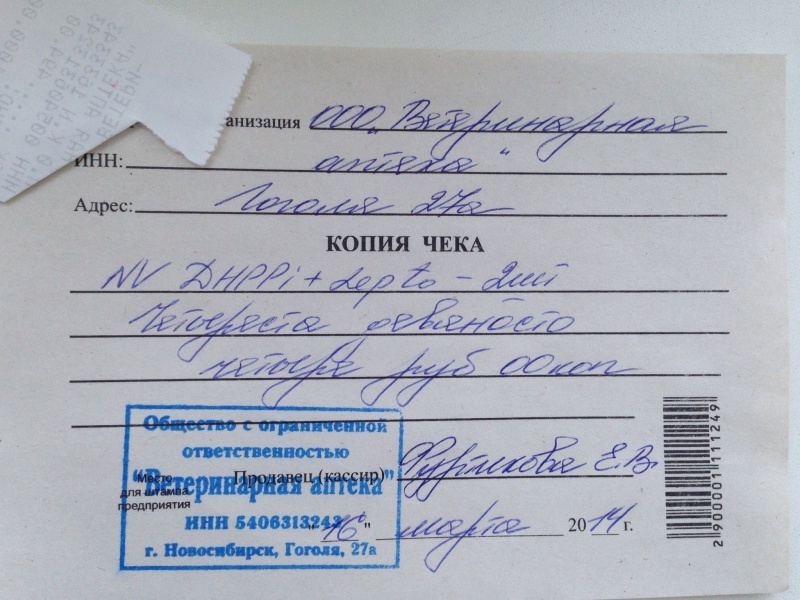 анизация ООО "Ветеринарная
ИНН: аптека"
Адрес: Гоголя 27а
КОПИЯ ЧЕКА
NV DHPPi + Lepto - 2шт
Четыреста девяносто
четыре руб 00 коп
Общество с ограниченной
ответственностью
"Ветеринарная аптека"
ИНН 5406313243
г. Новосибирск, Гоголя, 27а
Место
для штампа
предприятия
Продавец (кассир) Е.В.
"16" марта 2014 г.
2 900001 111249